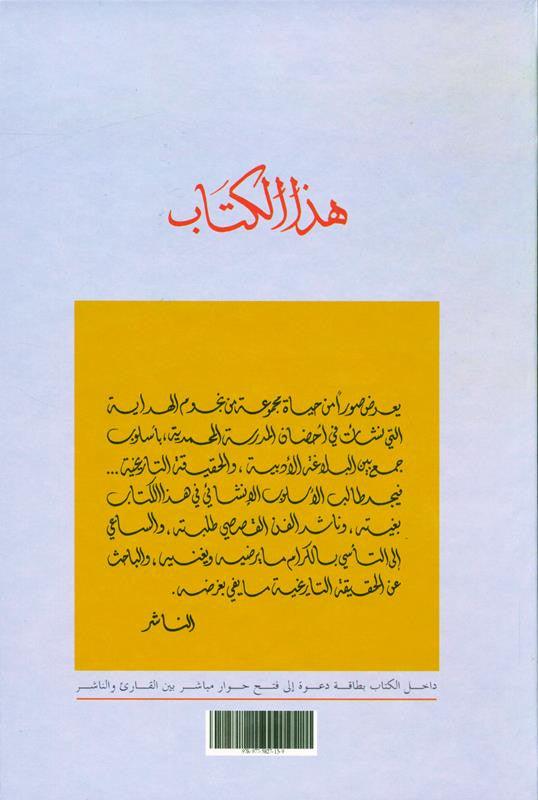 هذا الكتاب
يعرض صوراً من حياة مجموعة من نجوم الهداية
التي نشأت في أحضان المدرسة المحمدية ، بأسلوب
جمع بين البلاغة الأدبية ، والحقيقة التاريخية ...
فيجد طالب الأسلوب الإنشائي في هذا الكتاب
بغيته ، وناشد الفن القصصي طلبته ، والساعي
إلى التأسي بالكرام ما يرضيه ويغنيه ، والباحث
عن الحقيقة التاريخية ما يفي بغرضه .
الناشر
داخل الكتاب بطاقة دعوة إلى فتح حوار مباشر بين القارئ والناشر